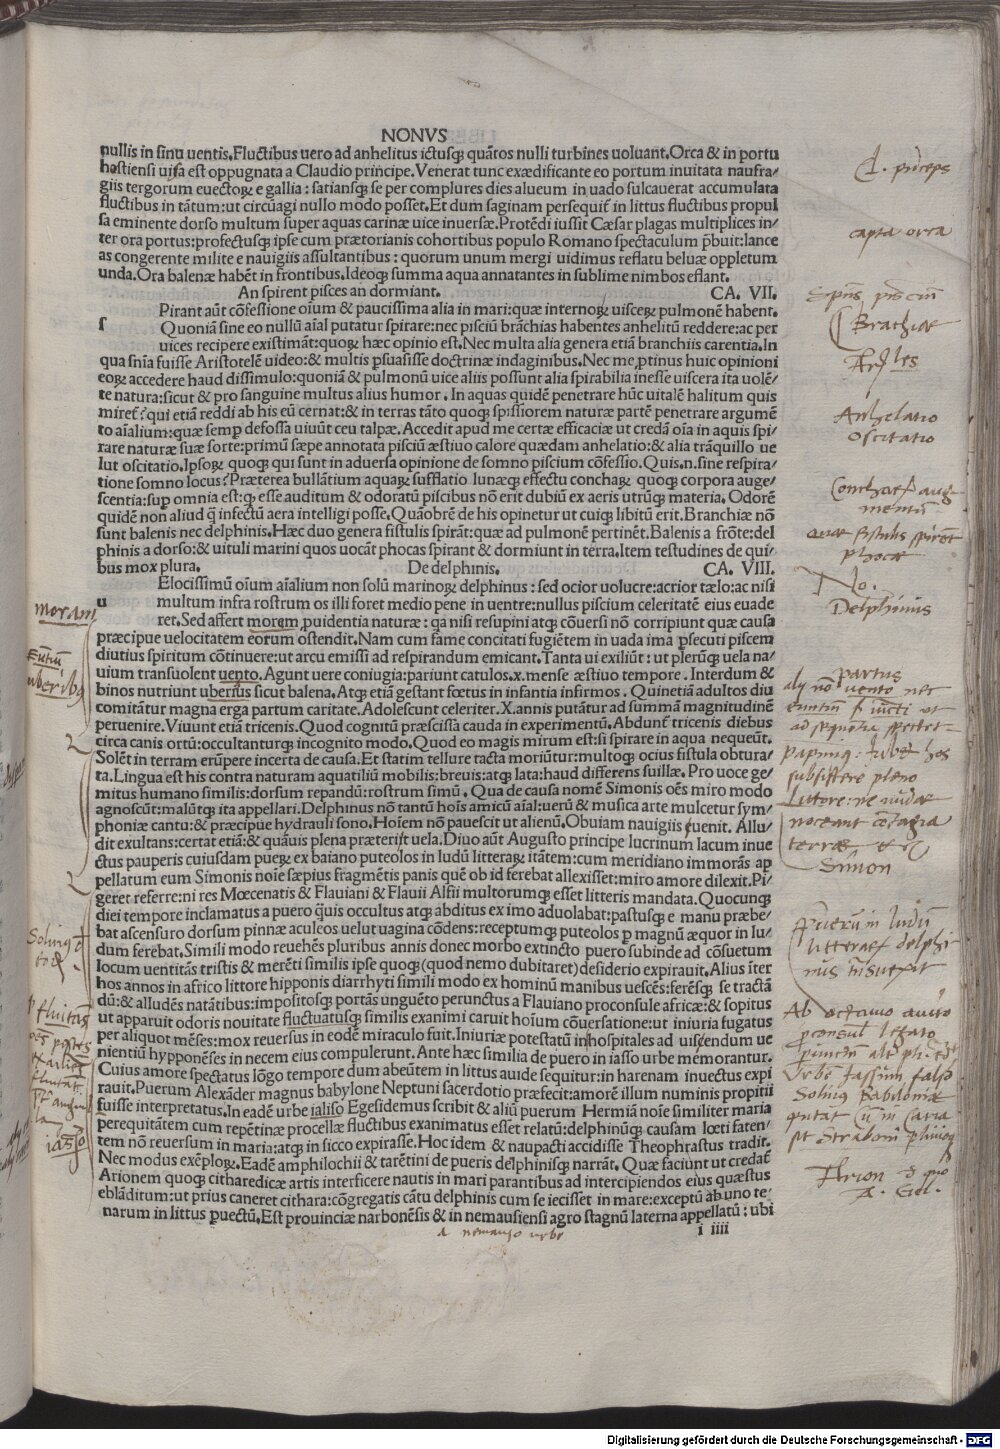 NONVS
nullis in sinu uentis.Fluctibus uero ad anhelitus ictusq; quãtos nulli turbines uoluant.Orca & in portu
hostiensi uisa est oppugnata a Claudio principe.Venerat tunc exædificante eo portum inuitata naufra/
giis tergorum euectorꝝ e gallia : satiansq; se per complures dies alueum in uado sulcauerat accumulata
fluctibus in tãtum:ut circũagi nullo modo posset.Et dum saginam persequit̃ in littus fluctibus propul
sa eminente dorso multum super aquas carinæ uice inuersæ.Protẽdi iussit Cæsar plagas multiplices in/
ter ora portus:profectusq; ipse cum prætorianis cohortibus populo Romano spectaculum p̃buit:lance
as congerente milite e nauigiis assultantibus : quorum unum mergi uidimus reflatu beluæ oppletum
unda.Ora balenæ habẽt in frontibus.Ideoq; summa aqua annatantes in sublime nimbos efflant.
An spirent pisces an dormiant. CA. VII.
Pirant aũt cõfessione oĩum & paucissima alia in mari:quæ internoꝝ uisceꝝ pulmonẽ habent.
s Quoniã sine eo nullũ aĩal putatur spirare:nec pisciũ brãchias habentes anhelitũ reddere:ac per
uices recipere existimãt:quoꝝ hæc opinio est.Nec multa alia genera etiã branchiis carentia.In
qua sñia fuisse Aristotelẽ uideo:& multis p̃suasisse doctrinæ indaginibus.Nec me,ptinus huic opinioni
eoꝝ accedere haud dissimulo:quoniã & pulmonũ uice aliis possunt alia spirabilia inesse uiscera ita uolẽ/
te natura:sicut & pro sanguine multus alius humor . In aquas quidẽ penetrare hũc uitalẽ halitum quis
miret̃?qui etiã reddi ab his eũ cernat:& in terras tãto quoq; spissiorem naturæ partẽ penetrare argumẽ
to aĩalium:quæ semp̱ defossa uiuũt ceu talpæ.Accedit apud me certæ efficaciæ ut credã oĩa in aquis spi/
rare naturæ suæ sorte:primũ sæpe annotata pisciũ æstiuo calore quædam anhelatio:& alia trãquillo ue
lut oscitatio.Ipsoꝝ quoq; qui sunt in aduersa opinione de somno piscium cõfessio.Quis.n.sine respira/
tione somno locus?Præterea bullãtium aquaꝝ sufflatio lunæq; effectu conchaꝝ quoq; corpora auge/
scentia:sup̱ omnia est:q; esse auditum & odoratũ piscibus nõ erit dubiũ ex aeris utrũq; materia. Odorẽ
quidẽ non aliud q̃ infectũ aera intelligi posse.Quãobrẽ de his opinetur ut cuiq; libitũ erit.Branchiæ nõ
sunt balenis nec delphinis.Hæc duo genera fistulis spirãt:quæ ad pulmonẽ pertinẽt.Balenis a frõte:del
phinis a dorso:& uituli marini quos uocãt phocas spirant & dormiunt in terra.Item testudines de qui/
bus mox plura. De delphinis. CA. VIII.
Elocissimũ oĩum aĩalium non solũ marinoꝝ delphinus : sed ocior uolucre:acrior tælo:ac nisi
u multum infra rostrum os illi foret medio pene in uentre:nullus piscium celeritatẽ eius euade
ret.Sed affert morem,puidentia naturæ : qa nisi resupini atq; cõuersi nõ corripiunt quæ causa
præcipue uelocitatem eorum ostendit.Nam cum fame concitati fugiẽtem in uada ima p̱secuti piscem
diutius spiritum cõtinuere:ut arcu emissi ad respirandum emicant.Tanta ui exiliũt : ut plerũq; uela na/
uium transuolent uento.Agunt uere coniugia:pariunt catulos.x.mense æstiuo tempore . Interdum &
binos nutriunt uberius sicut balena.Atq; etiã gestant fœtus in infantia infirmos . Quinetiã adultos diu
comitãtur magna erga partum caritate.Adolescunt celeriter.X.annis putãtur ad summã magnitudinẽ
peruenire.Viuunt etiã tricenis.Quod cognitũ præscissa cauda in experimentũ.Abdunt̃ tricenis diebus
circa canis ortũ:occultanturq; incognito modo.Quod eo magis mirum est:si spirare in aqua nequeũt.
Solẽt in terram erũpere incerta de causa.Et statim tellure tacta moriũtur:multoq; ocius fistula obtura/
ta.Lingua est his contra naturam aquatiliũ mobilis:breuis:atq; lata:haud differens suillæ. Pro uoce ge/
mitus humano similis:dorsum repandũ:rostrum simũ . Qua de causa nomẽ Simonis oẽs miro modo
agnoscũt:malũtq; ita appellari.Delphinus nõ tantũ hoĩs amicũ aĩal:uerũ & musica arte mulcetur sym/
phoniæ cantu:& præcipue hydrauli sono.Hoĩem nõ pauescit ut alienũ.Obuiam nauigiis ꝓuenit. Allu/
dit exultans:certat etiã:& quãuis plena præterijt uela.Diuo aũt Augusto principe lucrinum lacum inue
ctus pauperis cuiusdam pueꝝ ex baiano puteolos in ludũ litteraꝝ itãtem:cum meridiano immorãs ap
pellatum eum Simonis noĩe sæpius fragmẽtis panis quẽ ob id ferebat allexisset:miro amore dilexit.Pi/
geret referre:ni res Mœcenatis & Flauiani & Flauii Alfii multorumq; esset litteris mandata. Quocunq;
diei tempore inclamatus a puero q̃uis occultus atq; abditus ex imo aduolabat:pastusq; e manu præbe/
bat ascensuro dorsum pinnæ aculeos uelut uagina cõdens:receptumq; puteolos p̱ magnũ æquor in lu/
dum ferebat.Simili modo reuehẽs pluribus annis donec morbo extincto puero subinde ad cõsuetum
locum uentitãs tristis & merẽti similis ipse quoq;(quod nemo dubitaret)desiderio expirauit.Alius ĩter
hos annos in africo littore hipponis diarrhyti simili modo ex hominũ manibus uescẽs:ferẽsq; se tractã
dũ:& alludẽs natãtibus:impositosq; portãs unguẽto perunctus a Flauiano proconsule africæ:& sopitus
ut apparuit odoris nouitate fluctuatusq; similis exanimi caruit hoĩum cõuersatione:ut iniuria fugatus
per aliquot mẽses:mox reuersus in eodẽ miraculo fuit.Iniuriæ potestatũ inhospitales ad uisẽndum ue
nientiũ hypponẽses in necem eius compulerunt. Ante hæc similia de puero in iasso urbe memorantur.
Cuius amore spectatus lõgo tempore dum abeũtem in littus auide sequitur:in harenam inuectus expi
rauit.Puerum Alexãder magnus babylone Neptuni sacerdotio præfecit:amorẽ illum numinis propitii
fuisse interpretatus.In eadẽ urbe ialiso Egesidemus scribit & aliũ puerum Hermiã noĩe similiter maria
perequitãtem cum repẽtinæ procellæ fluctibus exanimatus esset relatũ:delphinũq; causam lœti faten/
tem nõ reuersum in maria:atq; in sicco expirasse.Hoc idem & naupacti accidisse Theophrastus tradit.
Nec modus exẽploꝝ.Eadẽ amphilochii & tarẽtini de pueris delphinisq; narrãt. Quæ faciunt ut credat̃
Arionem quoq; citharedicæ artis interficere nautis in mari parantibus ad intercipiendos eius quæstus
eblãditum:ut prius caneret cithara:cõgregatis cãtu delphinis cum se iecisset in mare:exceptũ ab uno te/
narum in littus ꝓuectũ.Est prouinciæ narbonẽsis & in nemausiensi agro stagnũ laterna appellatũ : ubi
a nemauso urbe
i iiii
Cl. princeps
capta orca
Brachiæ
Anhelatio
Oscitatio
phocæ
No.
Delphinus
partus
subsistere pleno
littore: ne nudæ
noceant cõtagia
terræ
Simon
Arion
A. Gel.
moram
fluitãs
Digitalisierung gefördert durch die Deutsche Forschungsgemeinschaft - DFG